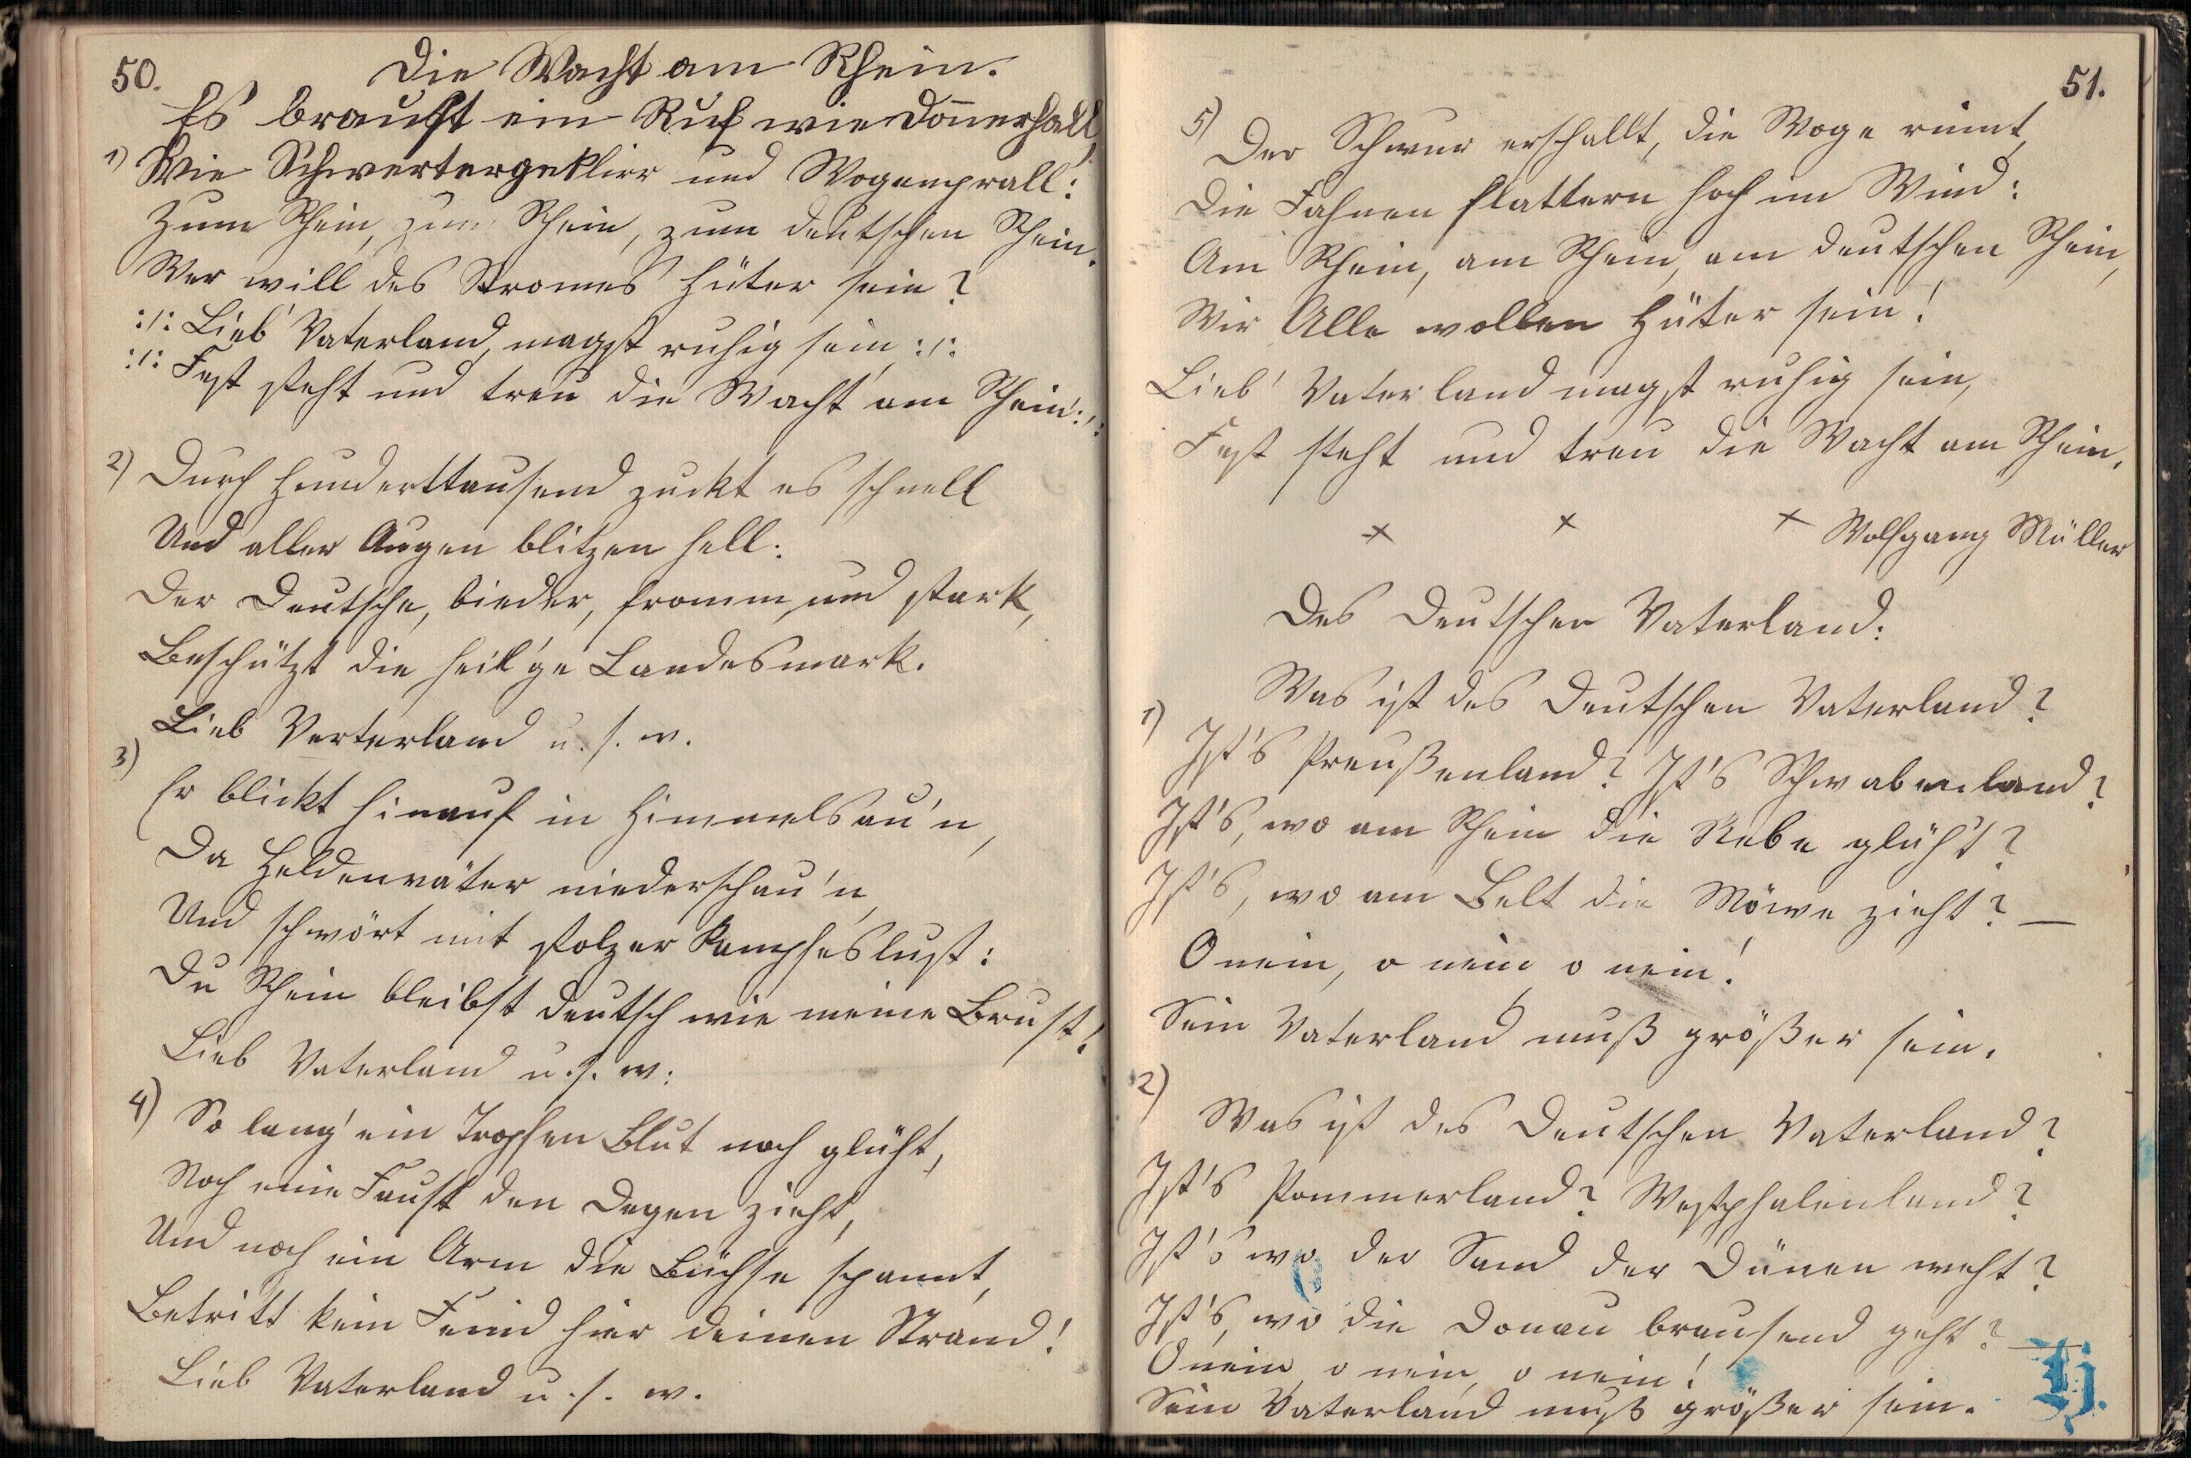 50.
Die Wacht am Rhein.
Es braust ein Ruf wie Donnerhall,
1) Wie Schwertergeklirr und Wogenprall:
Zum Rhein, zum Rhein, zum deutschen Rhein.
Wer will des Stromes Hüter sein?
:/: Lieb' Vaterland, magst ruhig sein, :/:
:/: Fest steht und treu die Wacht am Rhein! :/:
2) Durch Hunderttausend zuckt es schnell
Und aller Augen blitzen hell:
Der Deutsche, bieder, fromm, und stark,
Beschützt die heil'ge Landesmark.
Lieb Verterland u. s. w.
3)
Er blickt hinauf in Himmelsau'n,
Da Heldenväter niederschau'n,
Und schwört mit stolzer Kampfeslust:
Du Rhein bleibst deutsch wie meine Brust!
Lieb Vaterland u. s. w.
4) So lang' ein Tropfen Blut noch glüht,
Noch eine Faust den Degen zieht,
Und noch ein Arm die Büchse spannt,
Betritt kein Feind hier deinen Strand!
Lieb Vaterland u. s. w.
51.
5) Der Schwur erschallt, die Woge rinnt,
Die Fahnen flattern hoch im Wind:
Am Rhein, am Rhein, am deutschen Rhein,
Wir Alle wollen Hüter sein!
Lieb' Vaterland magst ruhig sein,
Fest steht und treu die Wacht am Rhein.
× × × Wolfgang Müller
Des Deutschen Vaterland.
Was ist des Deutschen Vaterland?
1) Ist's Preußenland? Ist's Schwabenland?
Ist's, wo am Rhein die Rebe glüht?
Ist's, wo am Belt die Möwe zieht? —
O nein, o nein, o nein!
Sein Vaterland muß größer sein.
2)
Was ist des Deutschen Vaterland?
Ist's Pommerland? Westphalenland?
Ist's wo der Sand der Dünen weht?
Ist's, wo die Donau brausend geht? —
O nein, o nein, o nein!
Sein Vaterland muß größer sein.